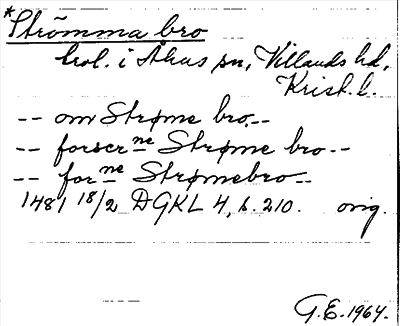 *Strömma bro
bol. i Åhus sn, Villands hd,
Krist. l.
-- om Strøme bro --
-- forscr ne Strøme bro --
-- for ne Strømebro --
1481 18/2 DGKL 4, s. 210. orig.
G.E. 1964.